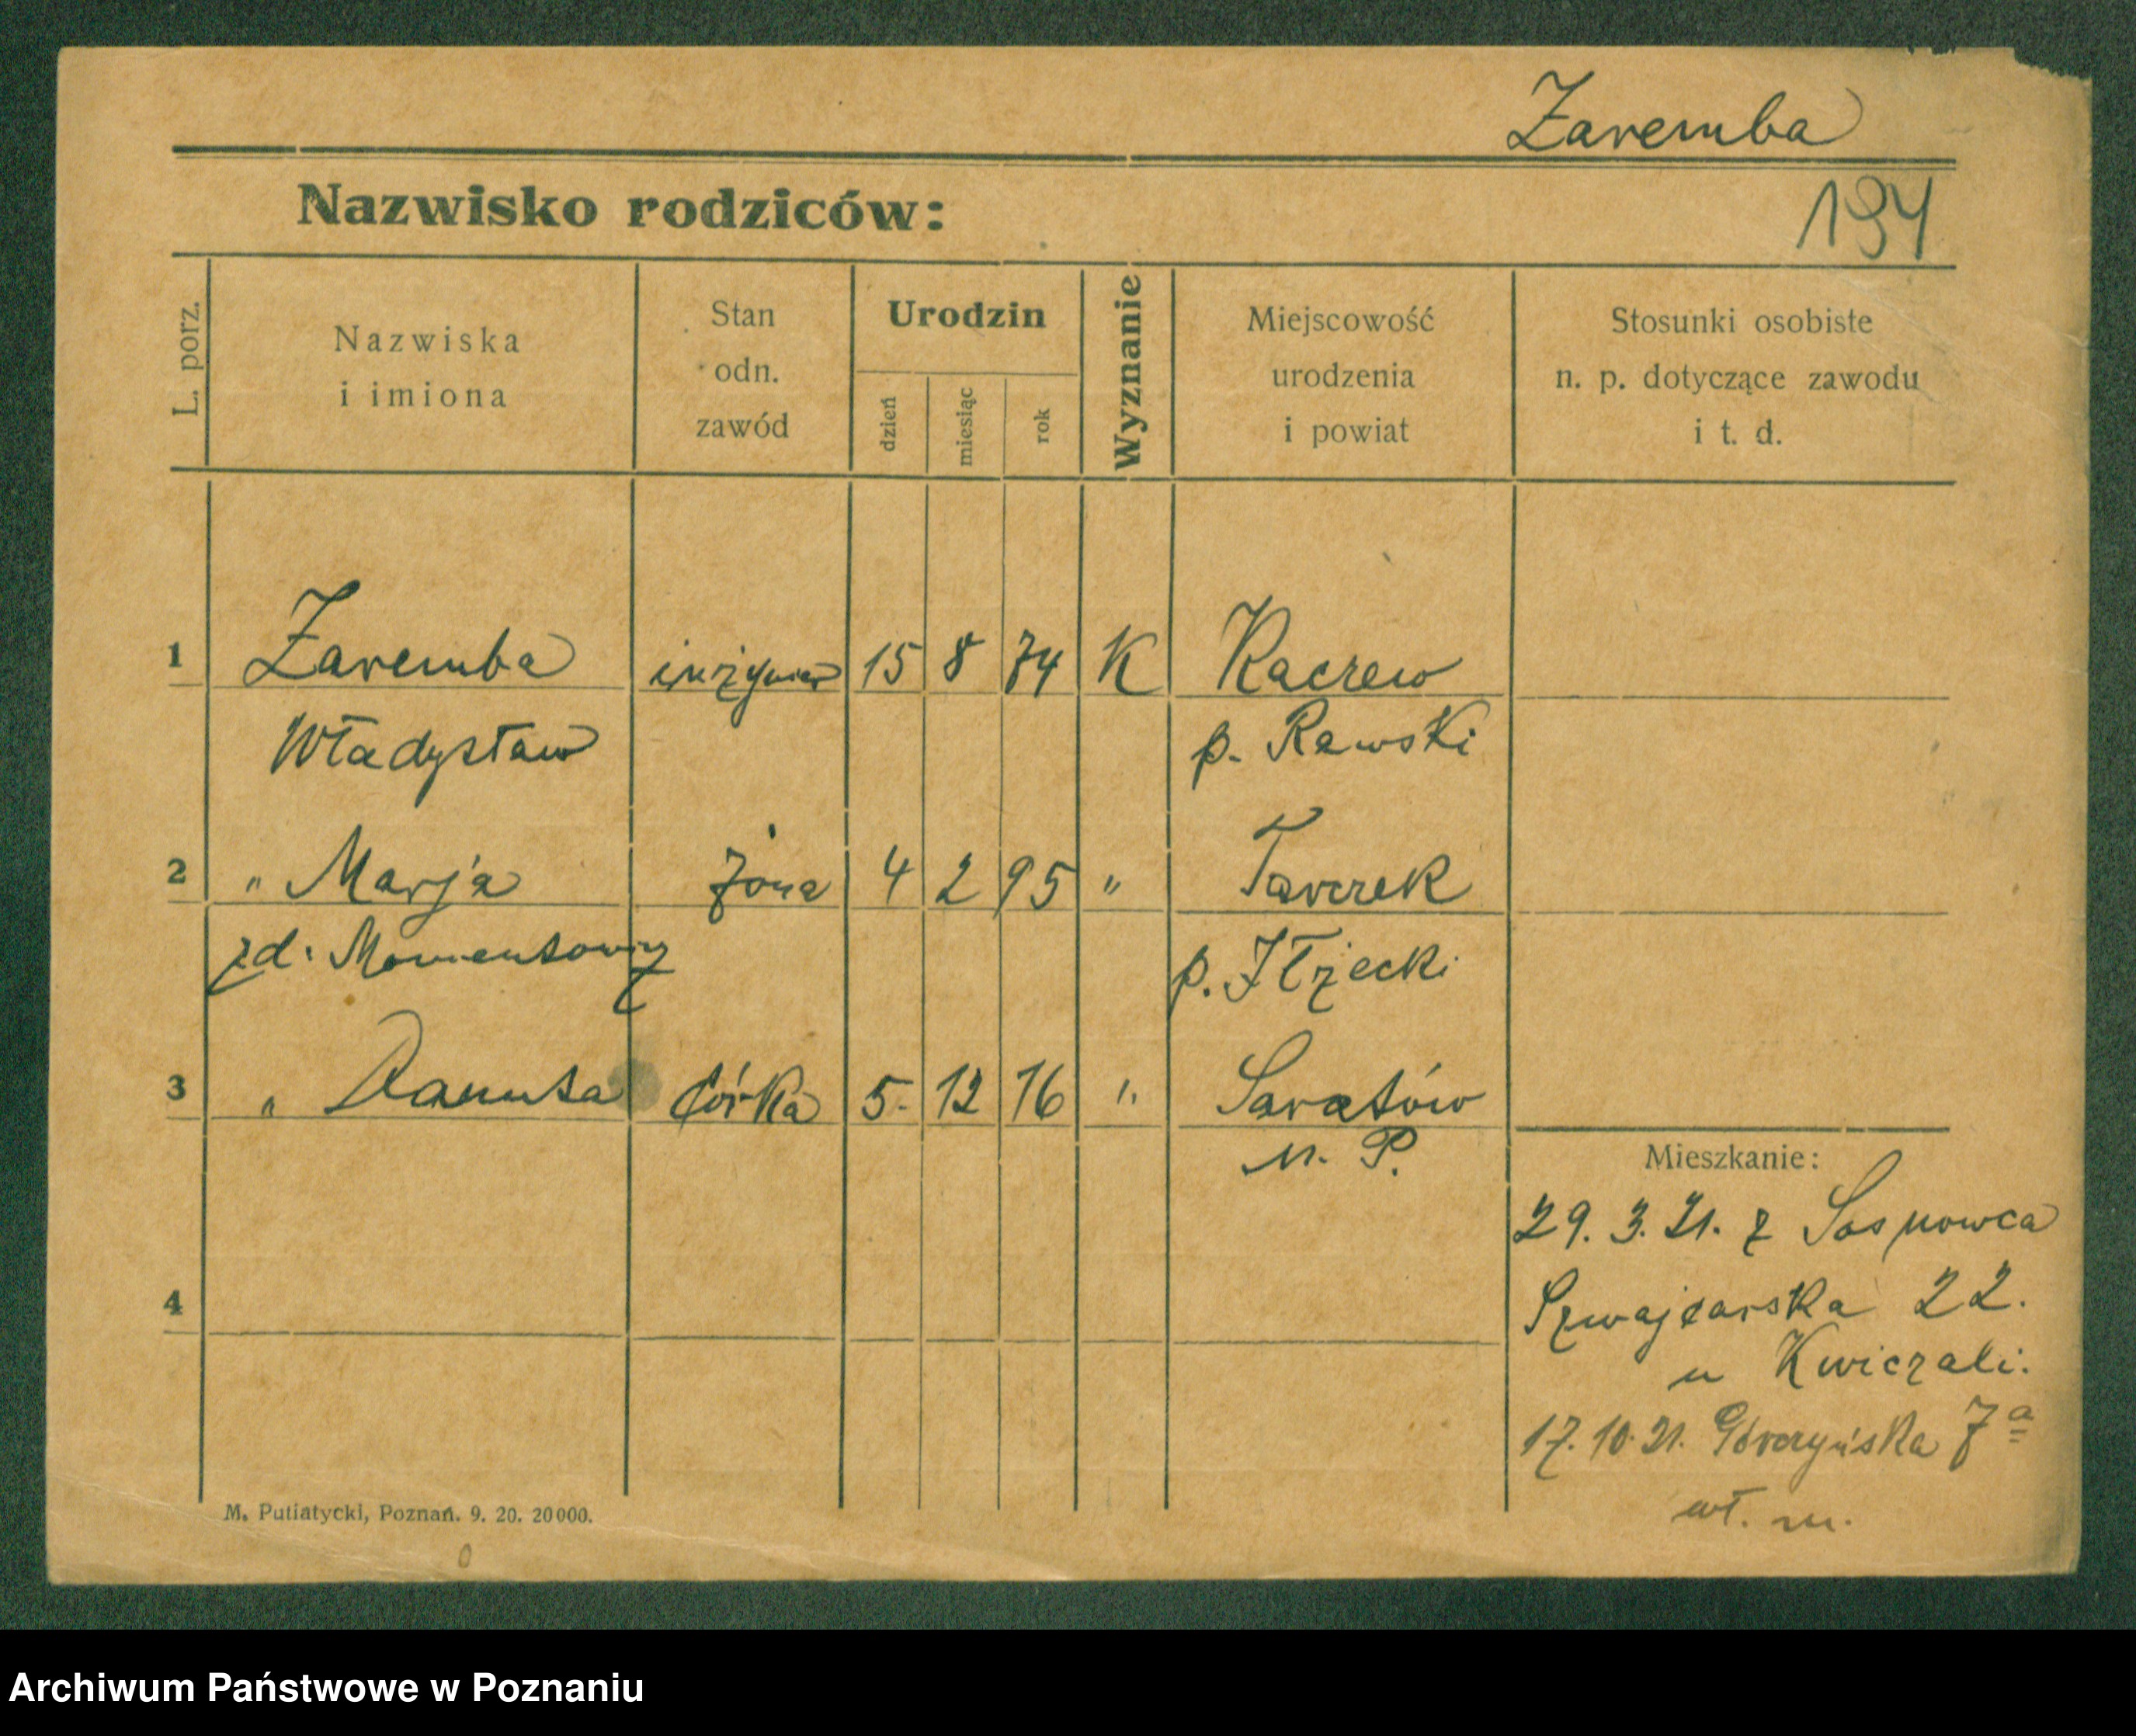 Zaremba
Nazwisko rodziców:
194
L. porz.
Nazwiska
i imiona
Stan
odn.
zawód
Urodzin
dzień
miesiąc
rok
Wyznanie
Miejscowość
urodzenia
i powiat
Stosunki osobiste
n. p. dotyczące zawodu
i t. d.
1 Zaremba inżynier 15 8 74 K Kaczew
Władysław p. Rawski
2 " Marja żona 4 2 95 " Tarczek
zd. p. Iłżecki
3 " Danuta córka 5. 12 16 " Saratów
n. P.
Mieszkanie:
29. 3. 21. z Sosnowca
Szwajcarska 22.
4
u Kwiczali.
17. 10. 21. Górczyńska 7a
wł. m.
M. Putiatycki, Poznań. 9. 20. 20000.
Archiwum Państwowe w Poznaniu